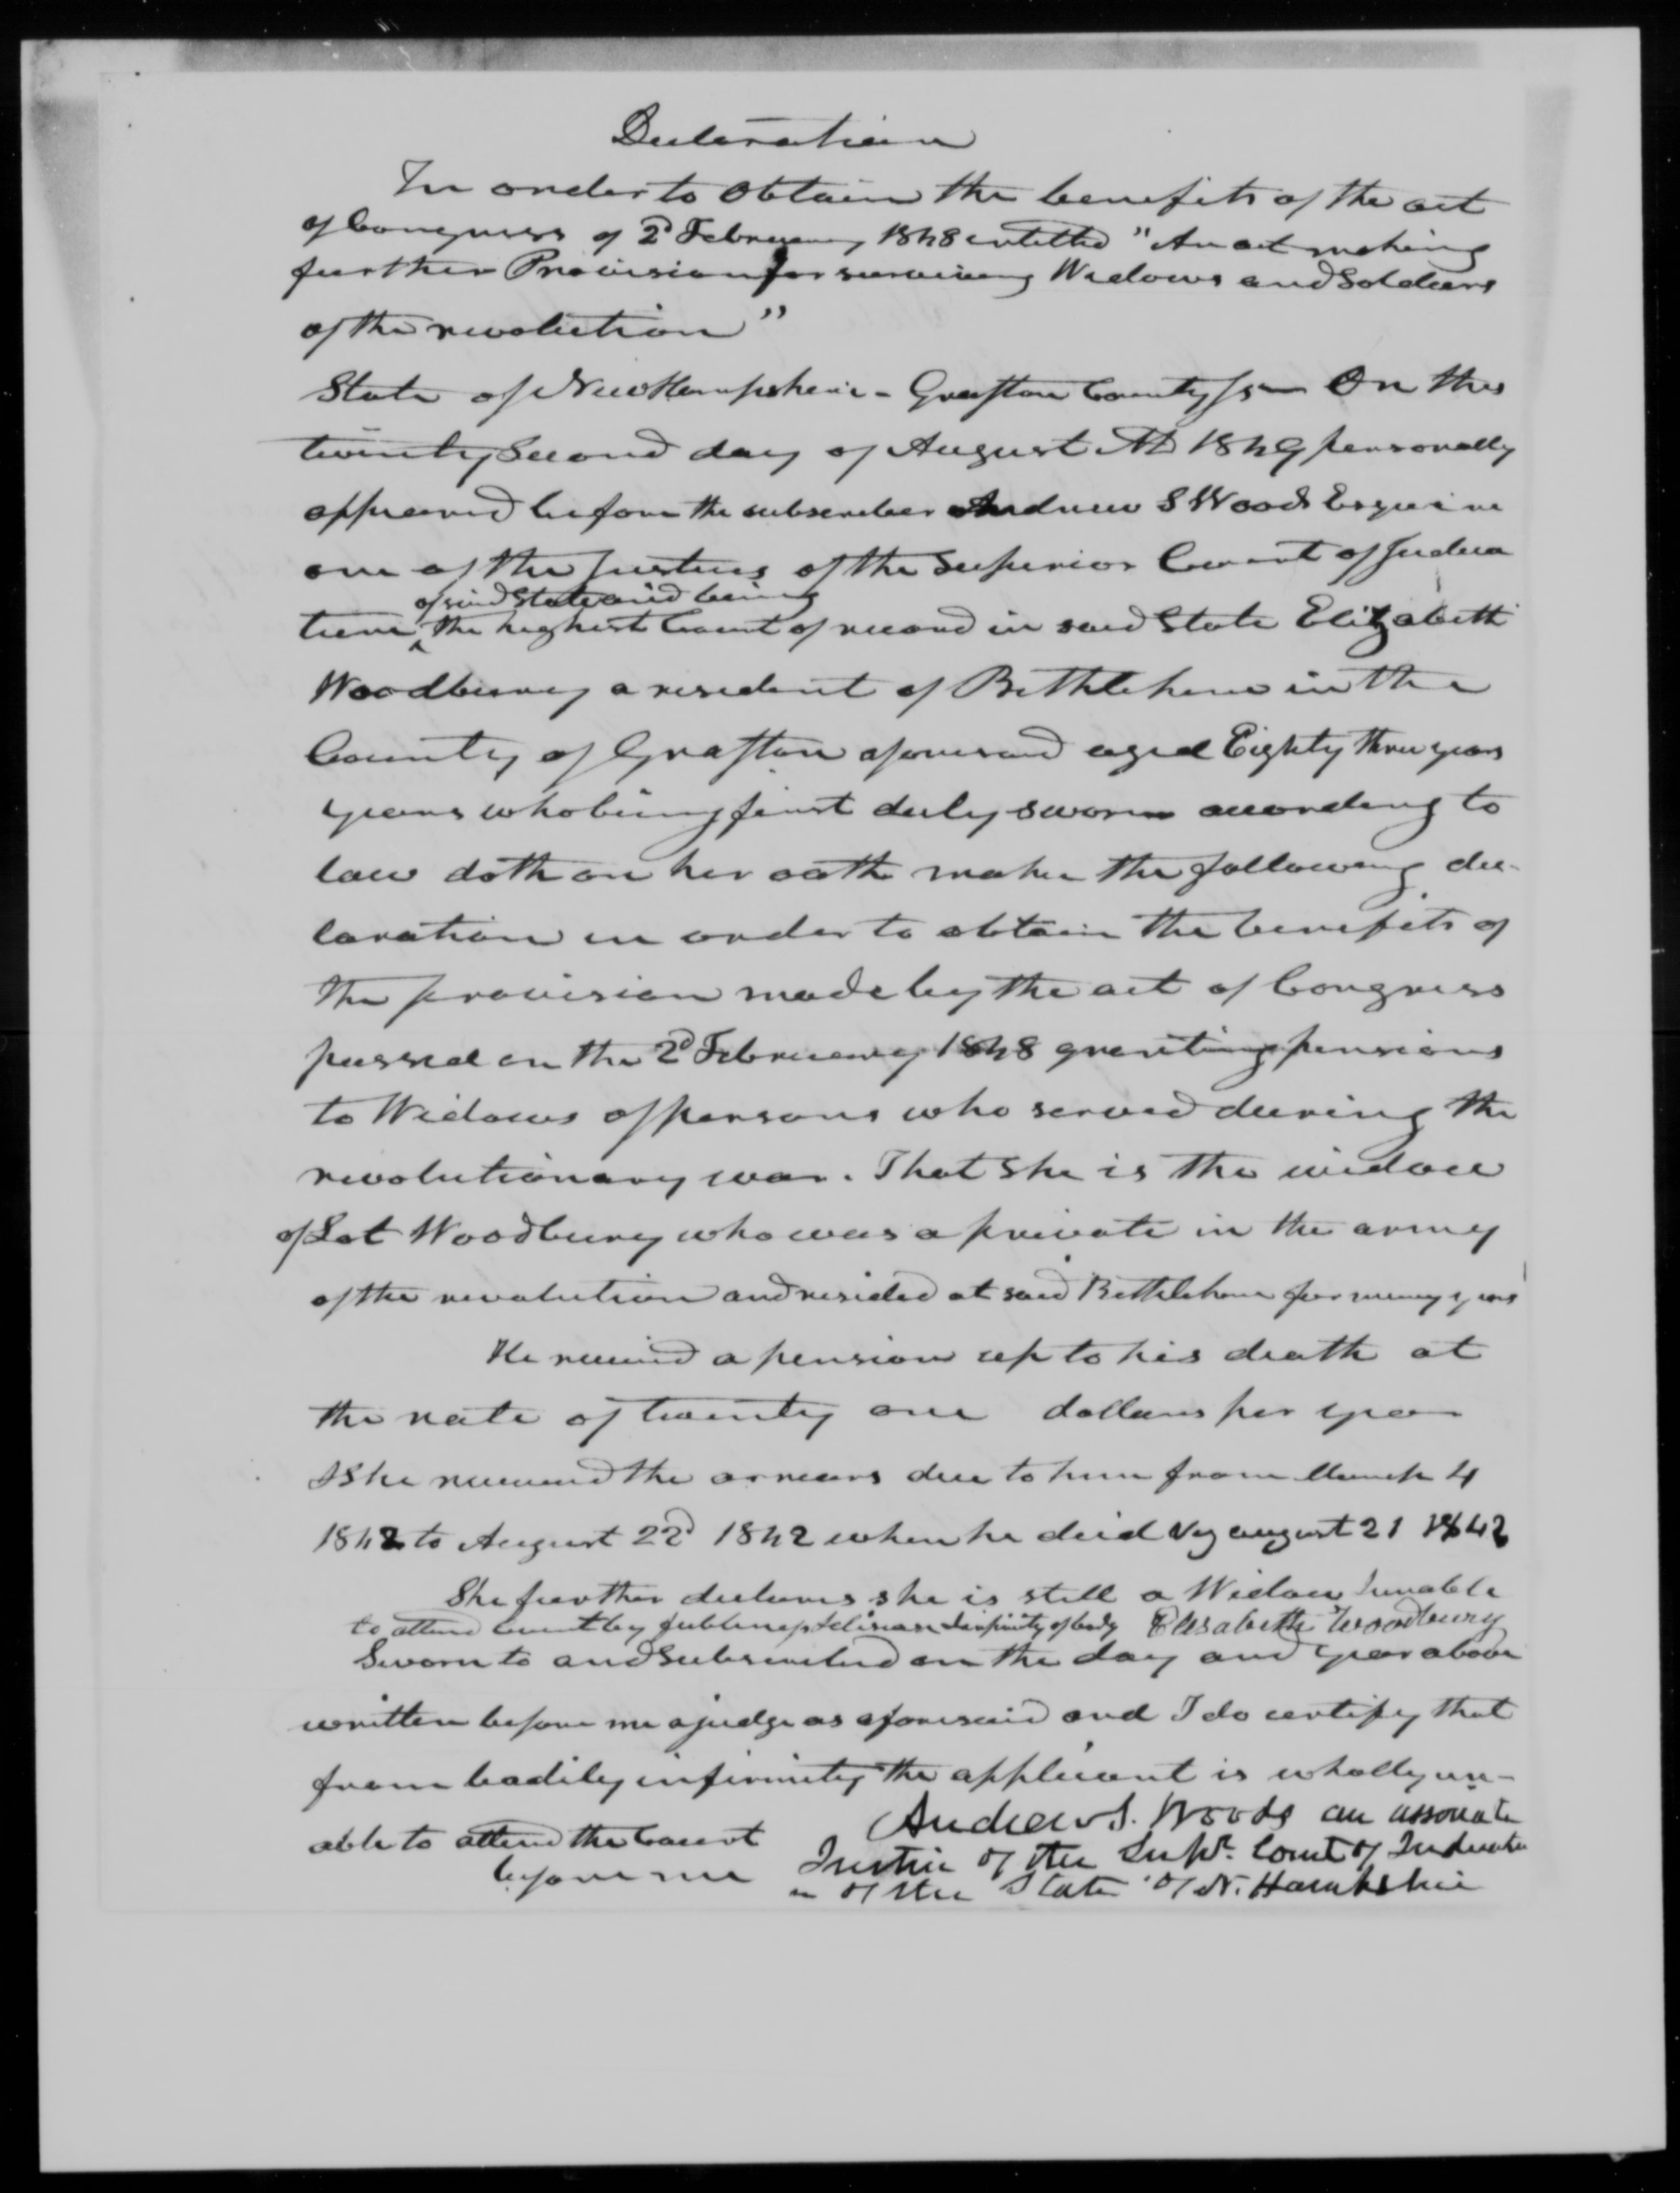 Declaration
In order to obtain the benefits of the act
of Congress of 2d February 1848 entitled "An act making
further Provision for surviving Widows and Soldiers
of the revolution"
State of New Hampshire - Grafton County ss On this
twenty second day of August AD 1849 personally
appeared before the subscriber Andrew S Woods Esquire
one of the Justices of the Superior Court of Judica
of said State and being
ture ^ the highest Court of record in said State Elizabeth
Woodbury a resident of Bethlehem in the
County of Grafton aforesaid aged Eighty three years
years who being first duly sworn according to
law doth on her oath make the following dec-
laration in order to obtain the benefits of
the provision made by the act of Congress
passed on the 2d February 1848 granting pensions
to Widows of persons who served during the
revolutionary war. That she is the widow
of Lot Woodbury who was a private in the army
of the revolution and resided at said Bethlehem for many years
He received a pension up to his death at
the rate of twenty one dollars per year
She received the arrears due to him from March 4
1842 to August 22d 1842 when he died August 21 1842
She further declares she is still a Widow & unable
to attend Court by infirmity of body Elisabeth Woodbury
Sworn to and Subscribed on the day and year above
written before me a judge as aforesaid and I do certify that
from bodily infirmity the applicant is wholly un-
able to attend the Court
before me
Andrew S. Woods an associate
Justice of the Supr. Court of Judicature
of the State of N. Hampshire